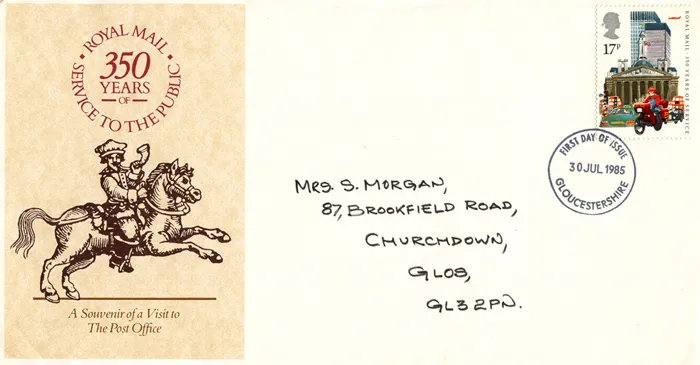 ROYAL MAIL • SERVICE TO THE PUBLIC •
350
YEARS
OF
A Souvenir of a Visit to
The Post Office
MRS. S. MORGAN,
87, BROOKFIELD ROAD,
CHURCHDOWN,
GLOS,
GL3 2PN.
17P
ROYAL MAIL · 350 YEARS OF SERVICE
FIRST DAY OF ISSUE
30 JUL 1985
GLOUCESTERSHIRE